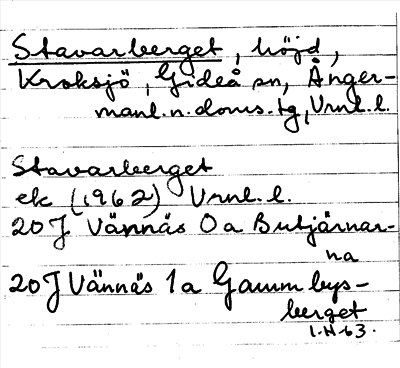 Stavarberget, höjd,
Kroksjö, Gideå sn, Ånger-
manl. n. doms. tg, Vrnl. l.
Stavarberget
ek (1962) Vrnl. l.
20J Vännäs 0a Butjärnar-
na
20J Vännäs 1a Gammbys-
berget
I.H-63.